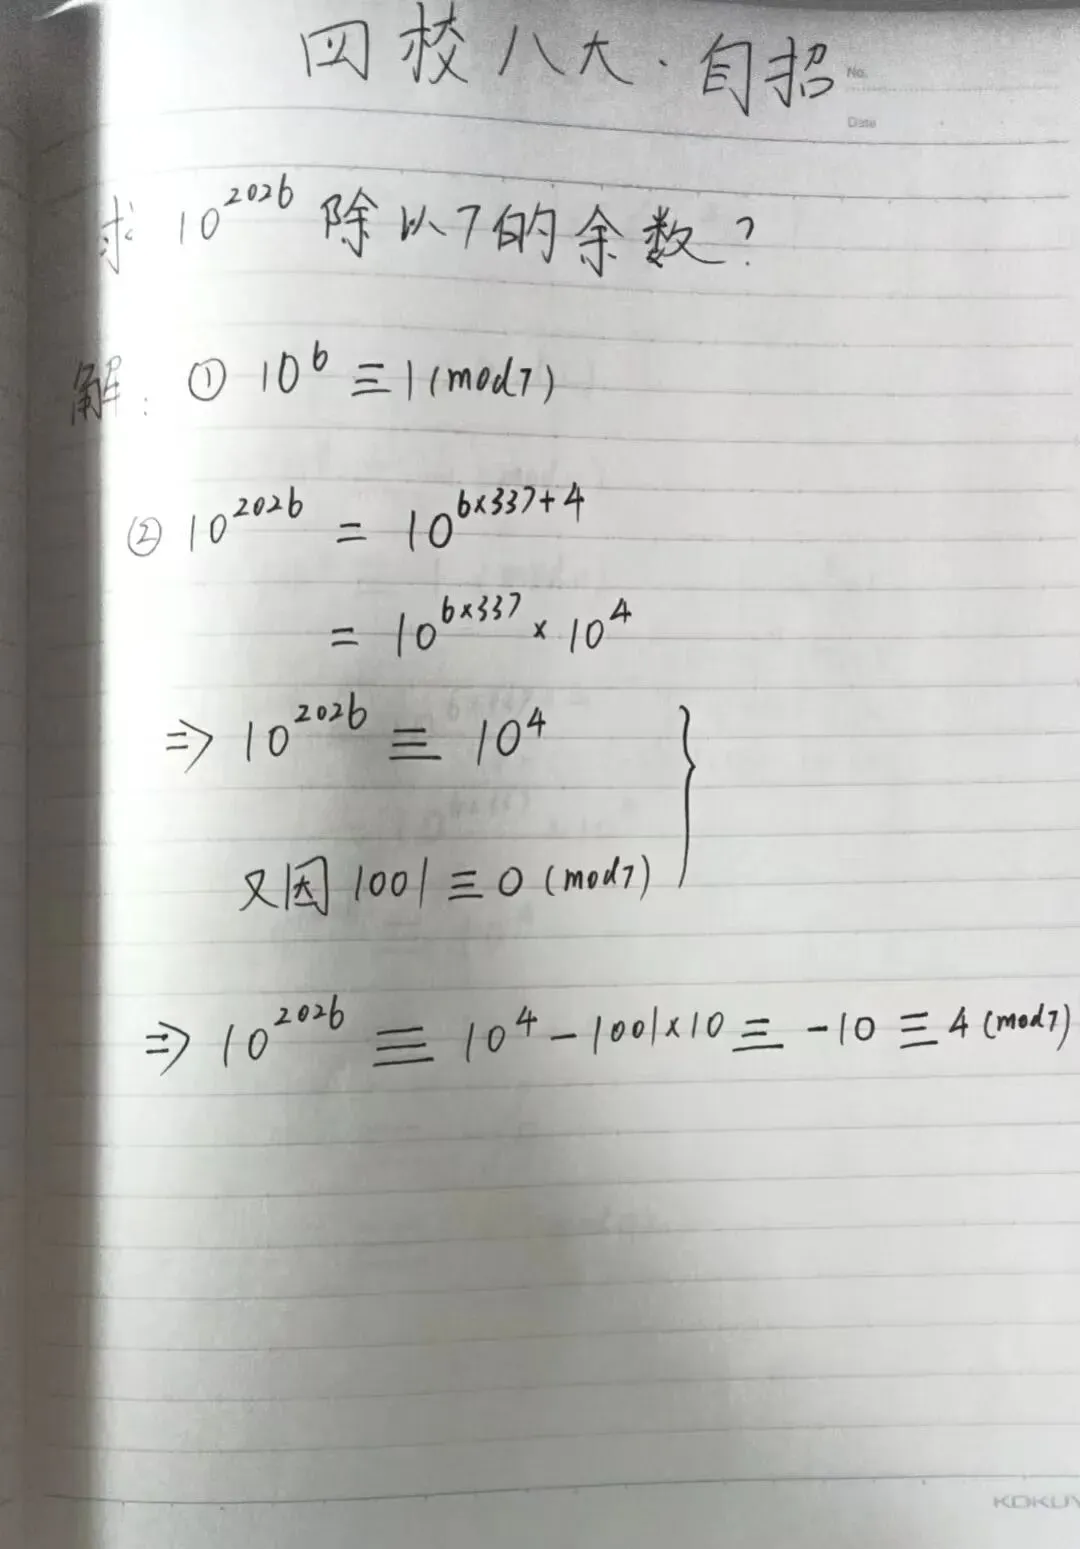 四校八大·自招
No.
Date
求 10^2026 除以7的余数?
解: ① 10^6 ≡ 1 (mod7)
② 10^2026 = 10^6×337+4
= 10^6×337 × 10^4
⇒ 10^2026 ≡ 10^4
又因 1001 ≡ 0 (mod7)
⇒ 10^2026 ≡ 10^4 - 1001×10 ≡ -10 ≡ 4 (mod7)
KOKUY